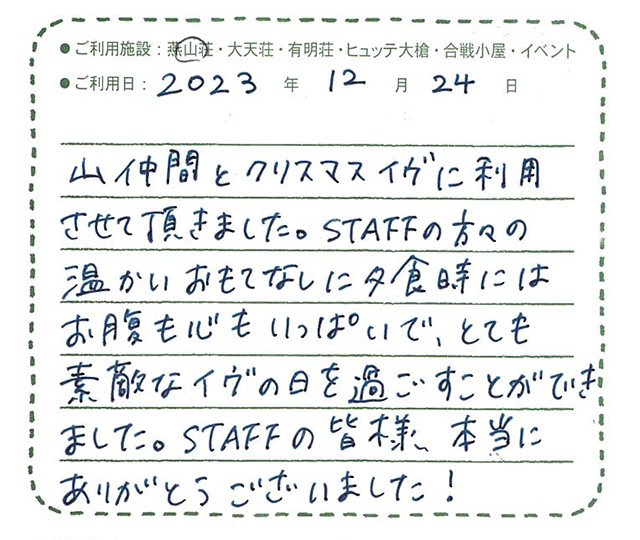 ●ご利用施設：燕山荘・大天荘・有明荘・ヒュッテ大槍・合戦小屋・イベント
●ご利用日：2023年12月24日
山仲間とクリスマスイヴに利用
させて頂きました。STAFFの方々の
温かいおもてなしに夕食時には
お腹も心もいっぱいで、とても
素敵なイヴの日を過ごすことができ
ました。STAFFの皆様、本当に
ありがとうございました！